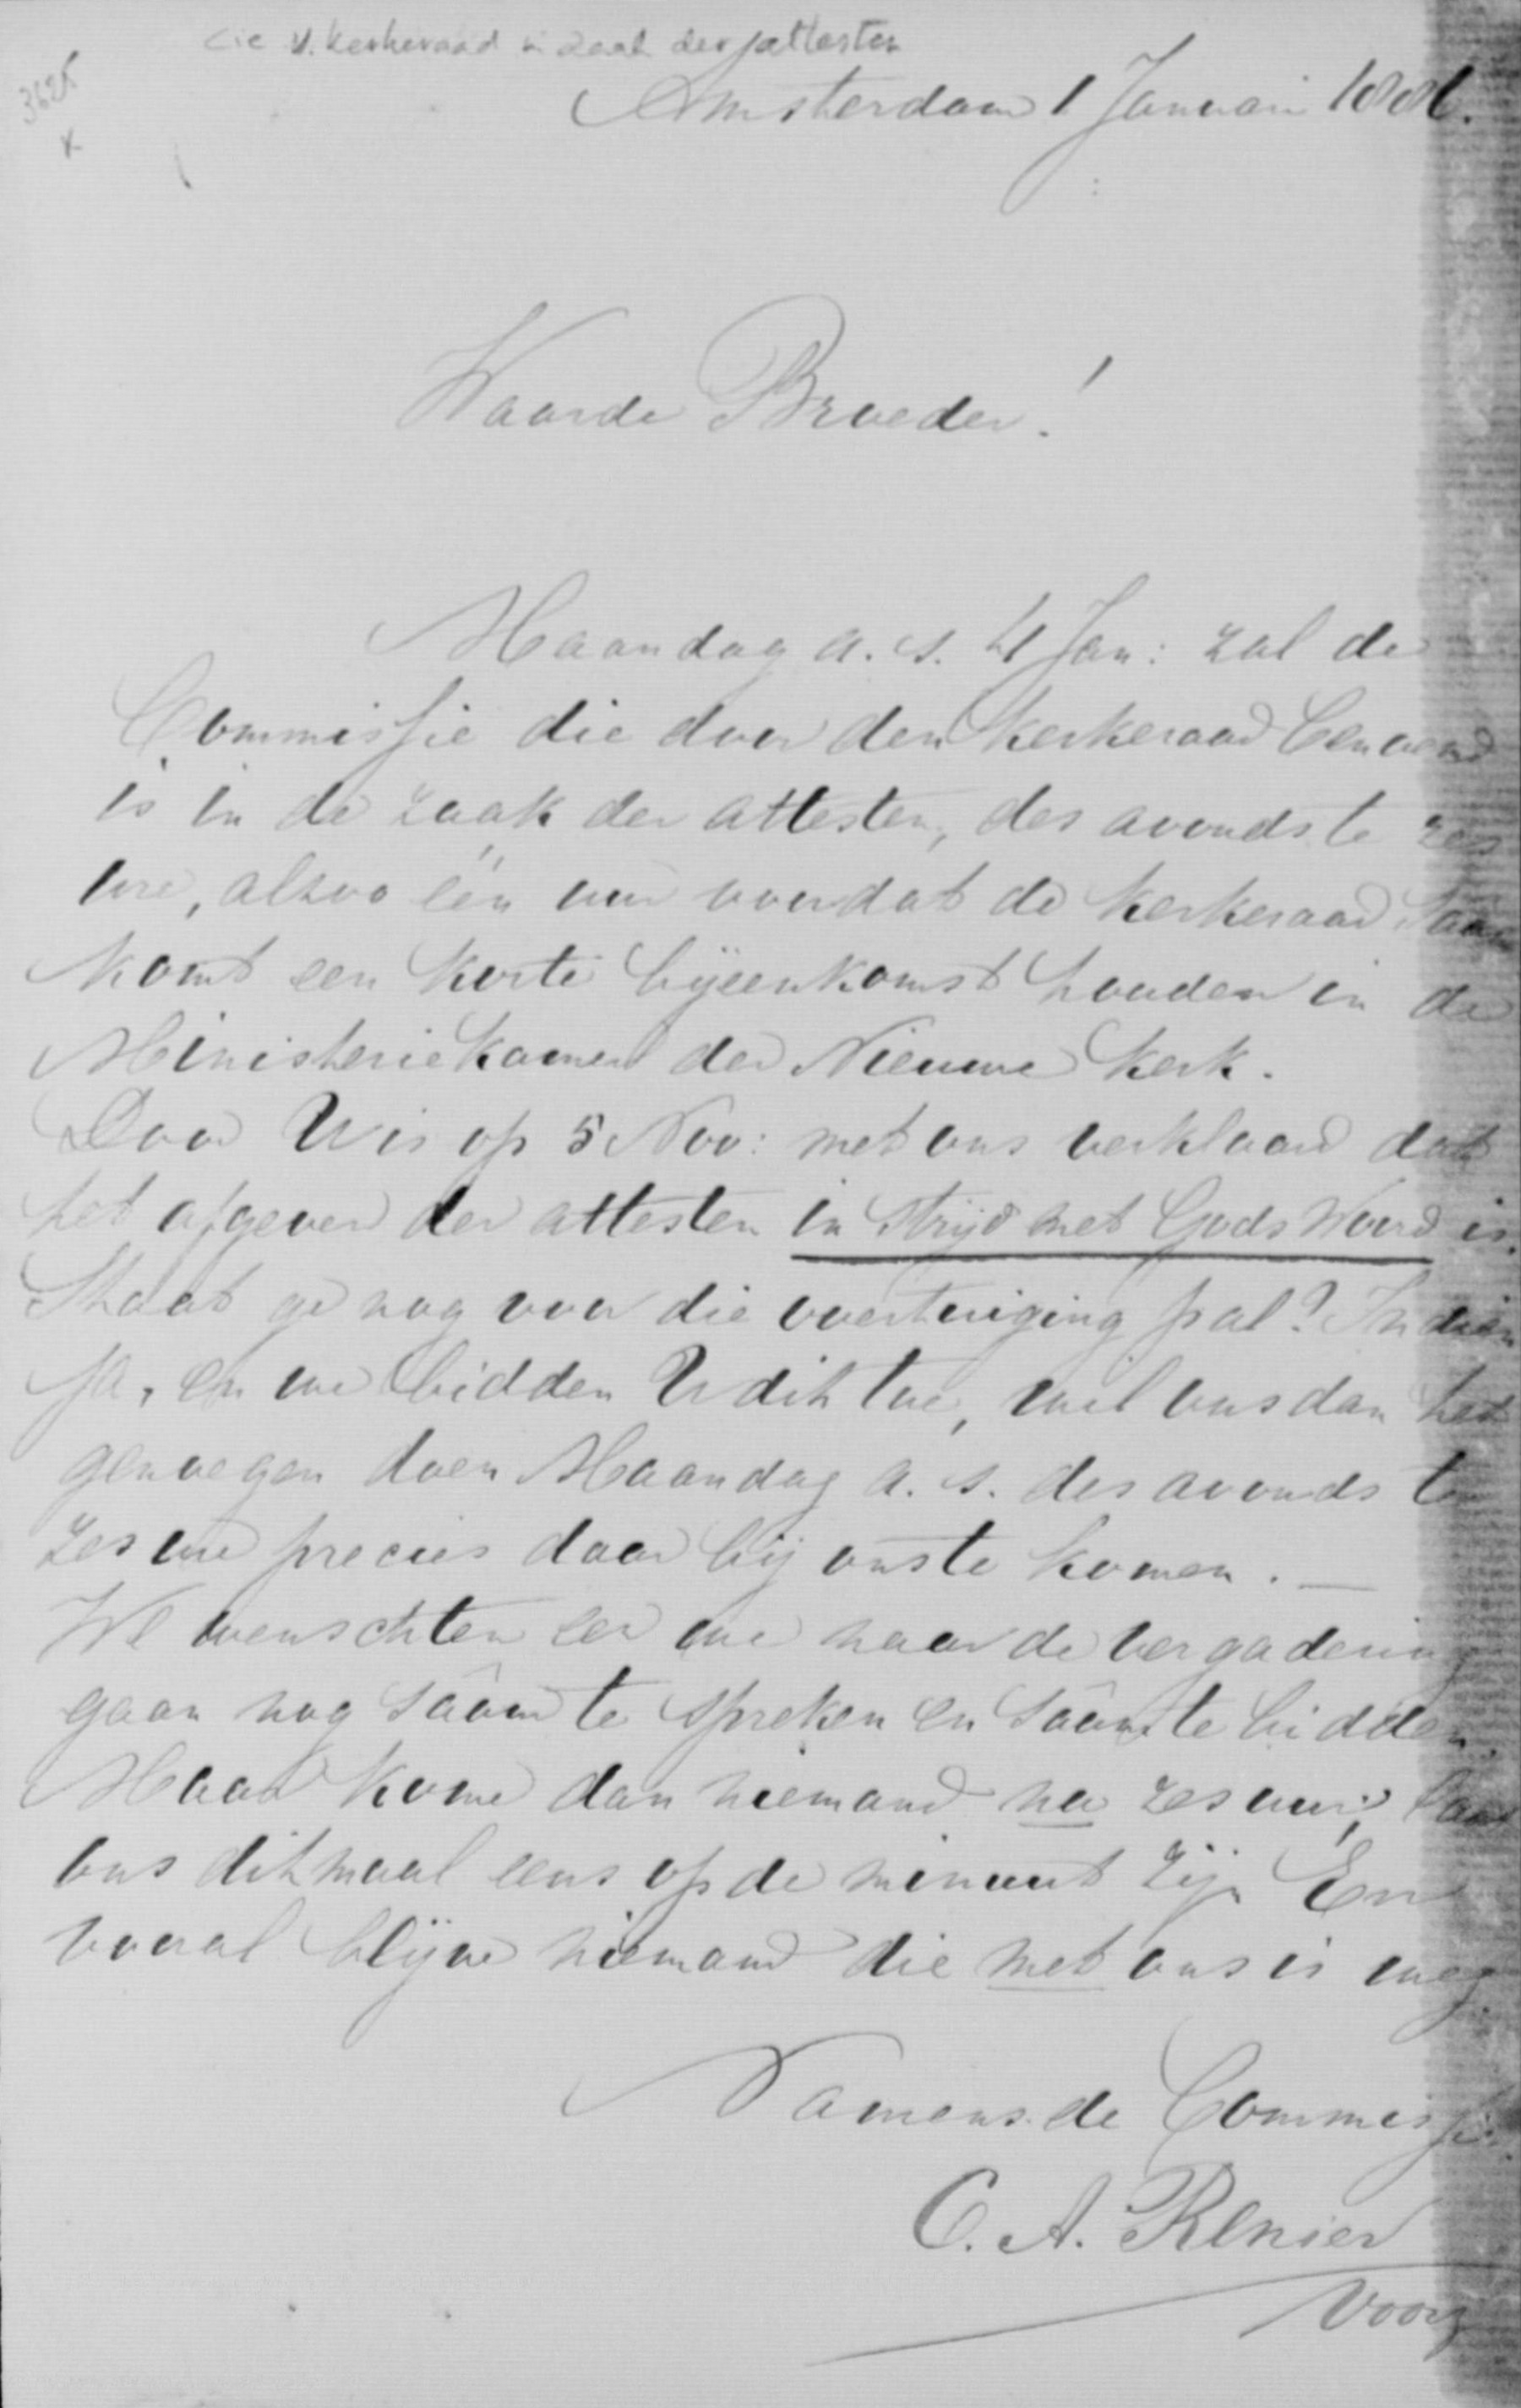 Cie v. kerkeraad in zaak der attesten
3625
x
Amsterdam 1 Januari 1886.
Waarde Broeder!
Maandag a. s. 4 Jan: zal de
Commissie die door den kerkeraad benoemd
is in de zaak der attesten, des avonds te zes
ure, alzoo één uur voordat de kerkeraad saam
komt een korte bijeenkomst houden in de
Ministeriekamer der Nieuwe Kerk.
Door U is op 5 Nov: met ons verklaard dat
het afgeven der attesten in strijd met Gods Woord is.
Staat ge nog voor die overtuiging pal? Indien
ja, en we bidden U dit toe, wil ons dan het
genoegen doen Maandag a. s. des avonds te
zes ure precies daar bij ons te komen. —
We wenschten eer we naar de vergadering
gaan nog saâm te spreken en saâm te bidden.
Maar kome dan niemand na zes uur; laat
ons ditmaal eens op de minuut zijn En
vooral blijve niemand die met ons is weg.
Namens de Commissie
C. A. Renier
Voorz